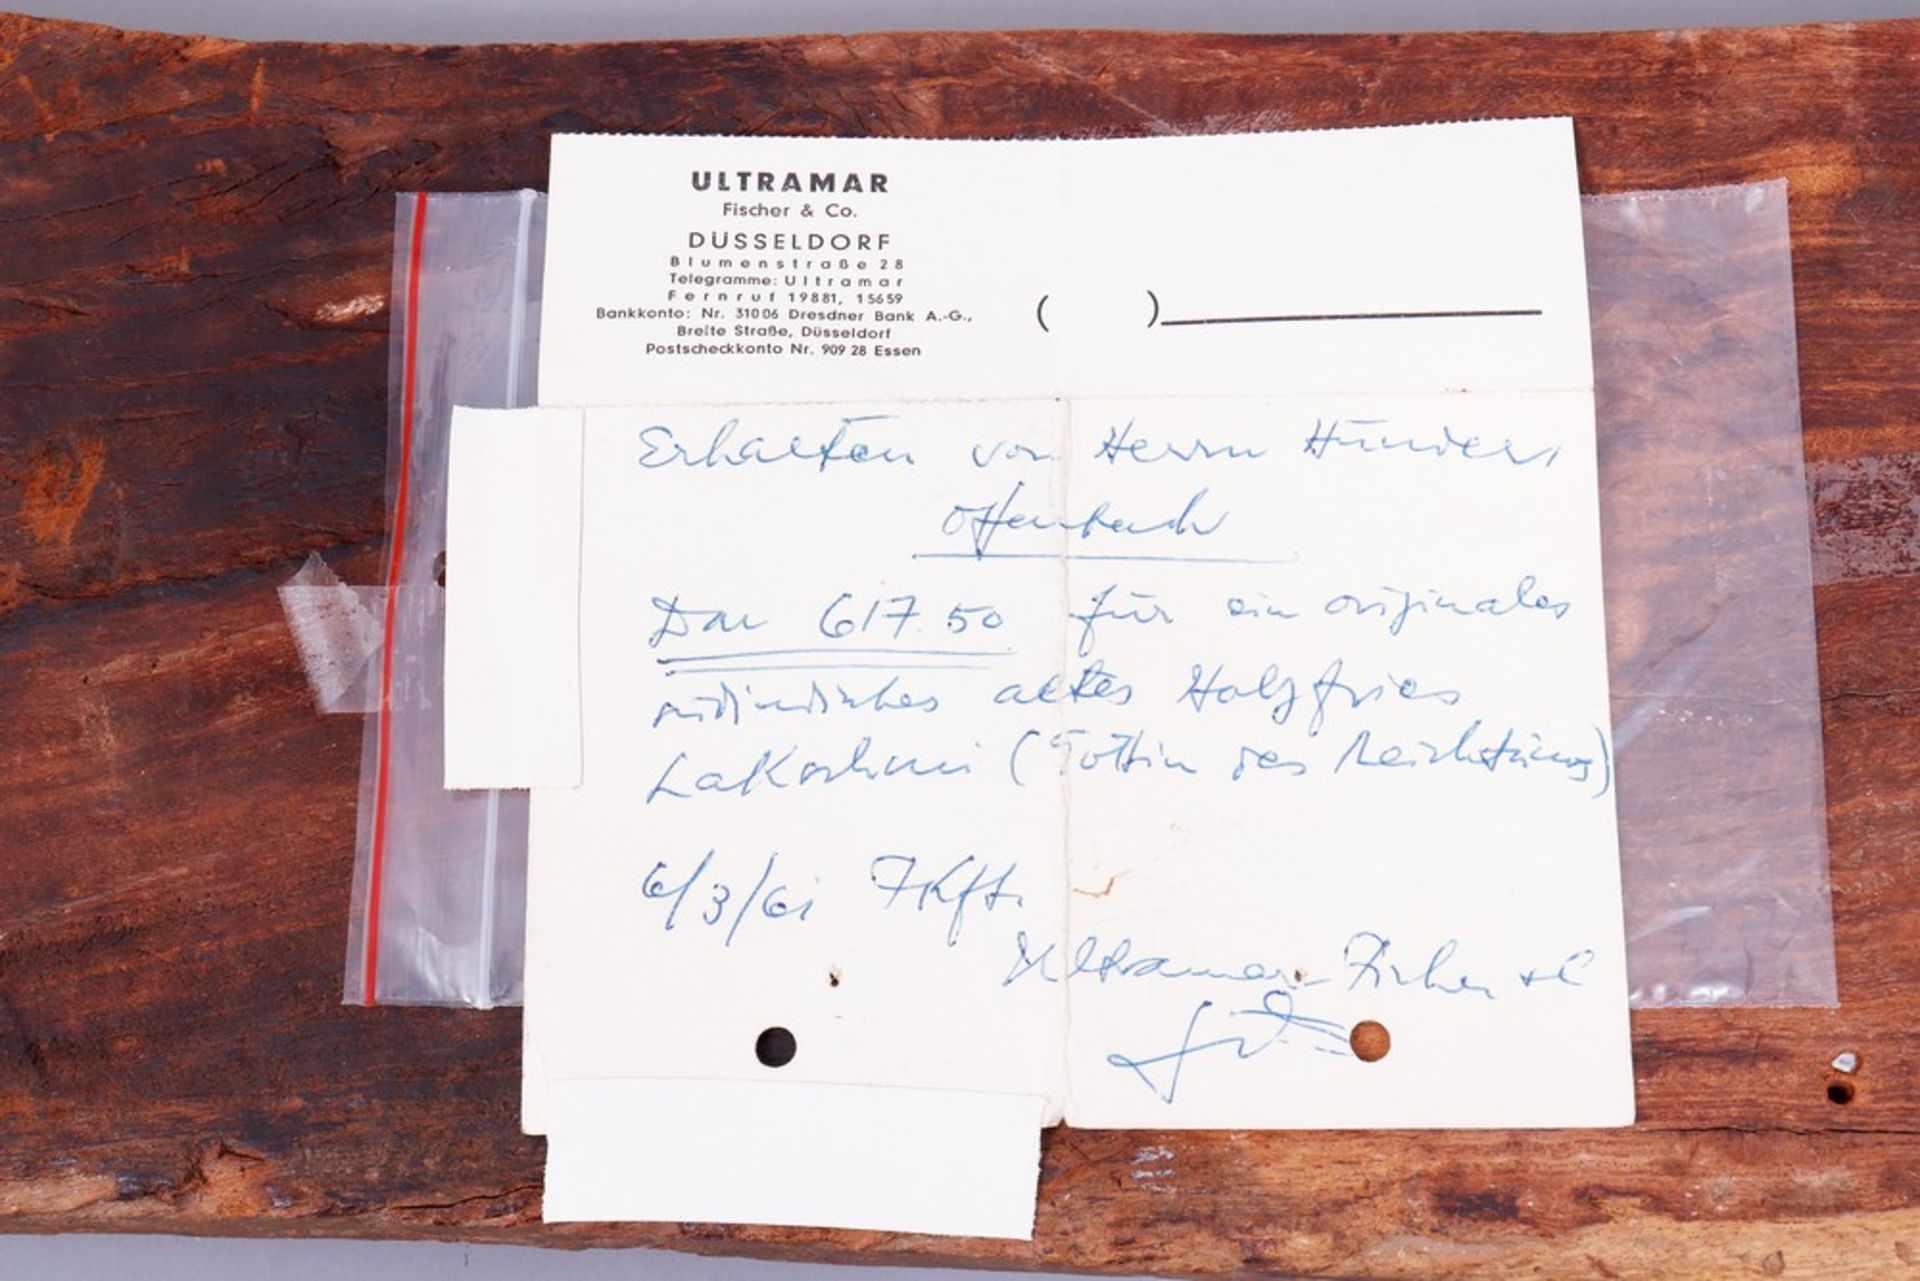 ULTRAMAR
Fischer & Co.
DÜSSELDORF
Blumenstraße 28
Telegramme: Ultramar
Fernruf 19881, 15659
Bankkonto: Nr. 31006 Dresdner Bank A.-G.,
Breite Straße, Düsseldorf
Postscheckkonto Nr. 909 28 Essen
( )
Erhalten von Herrn
Offenbach
617.50 für ein originales
südindisches altes Holzfries
(Göttin des Reichtums)
6/3/61 Fkft.
Ultramar-Fischer + C